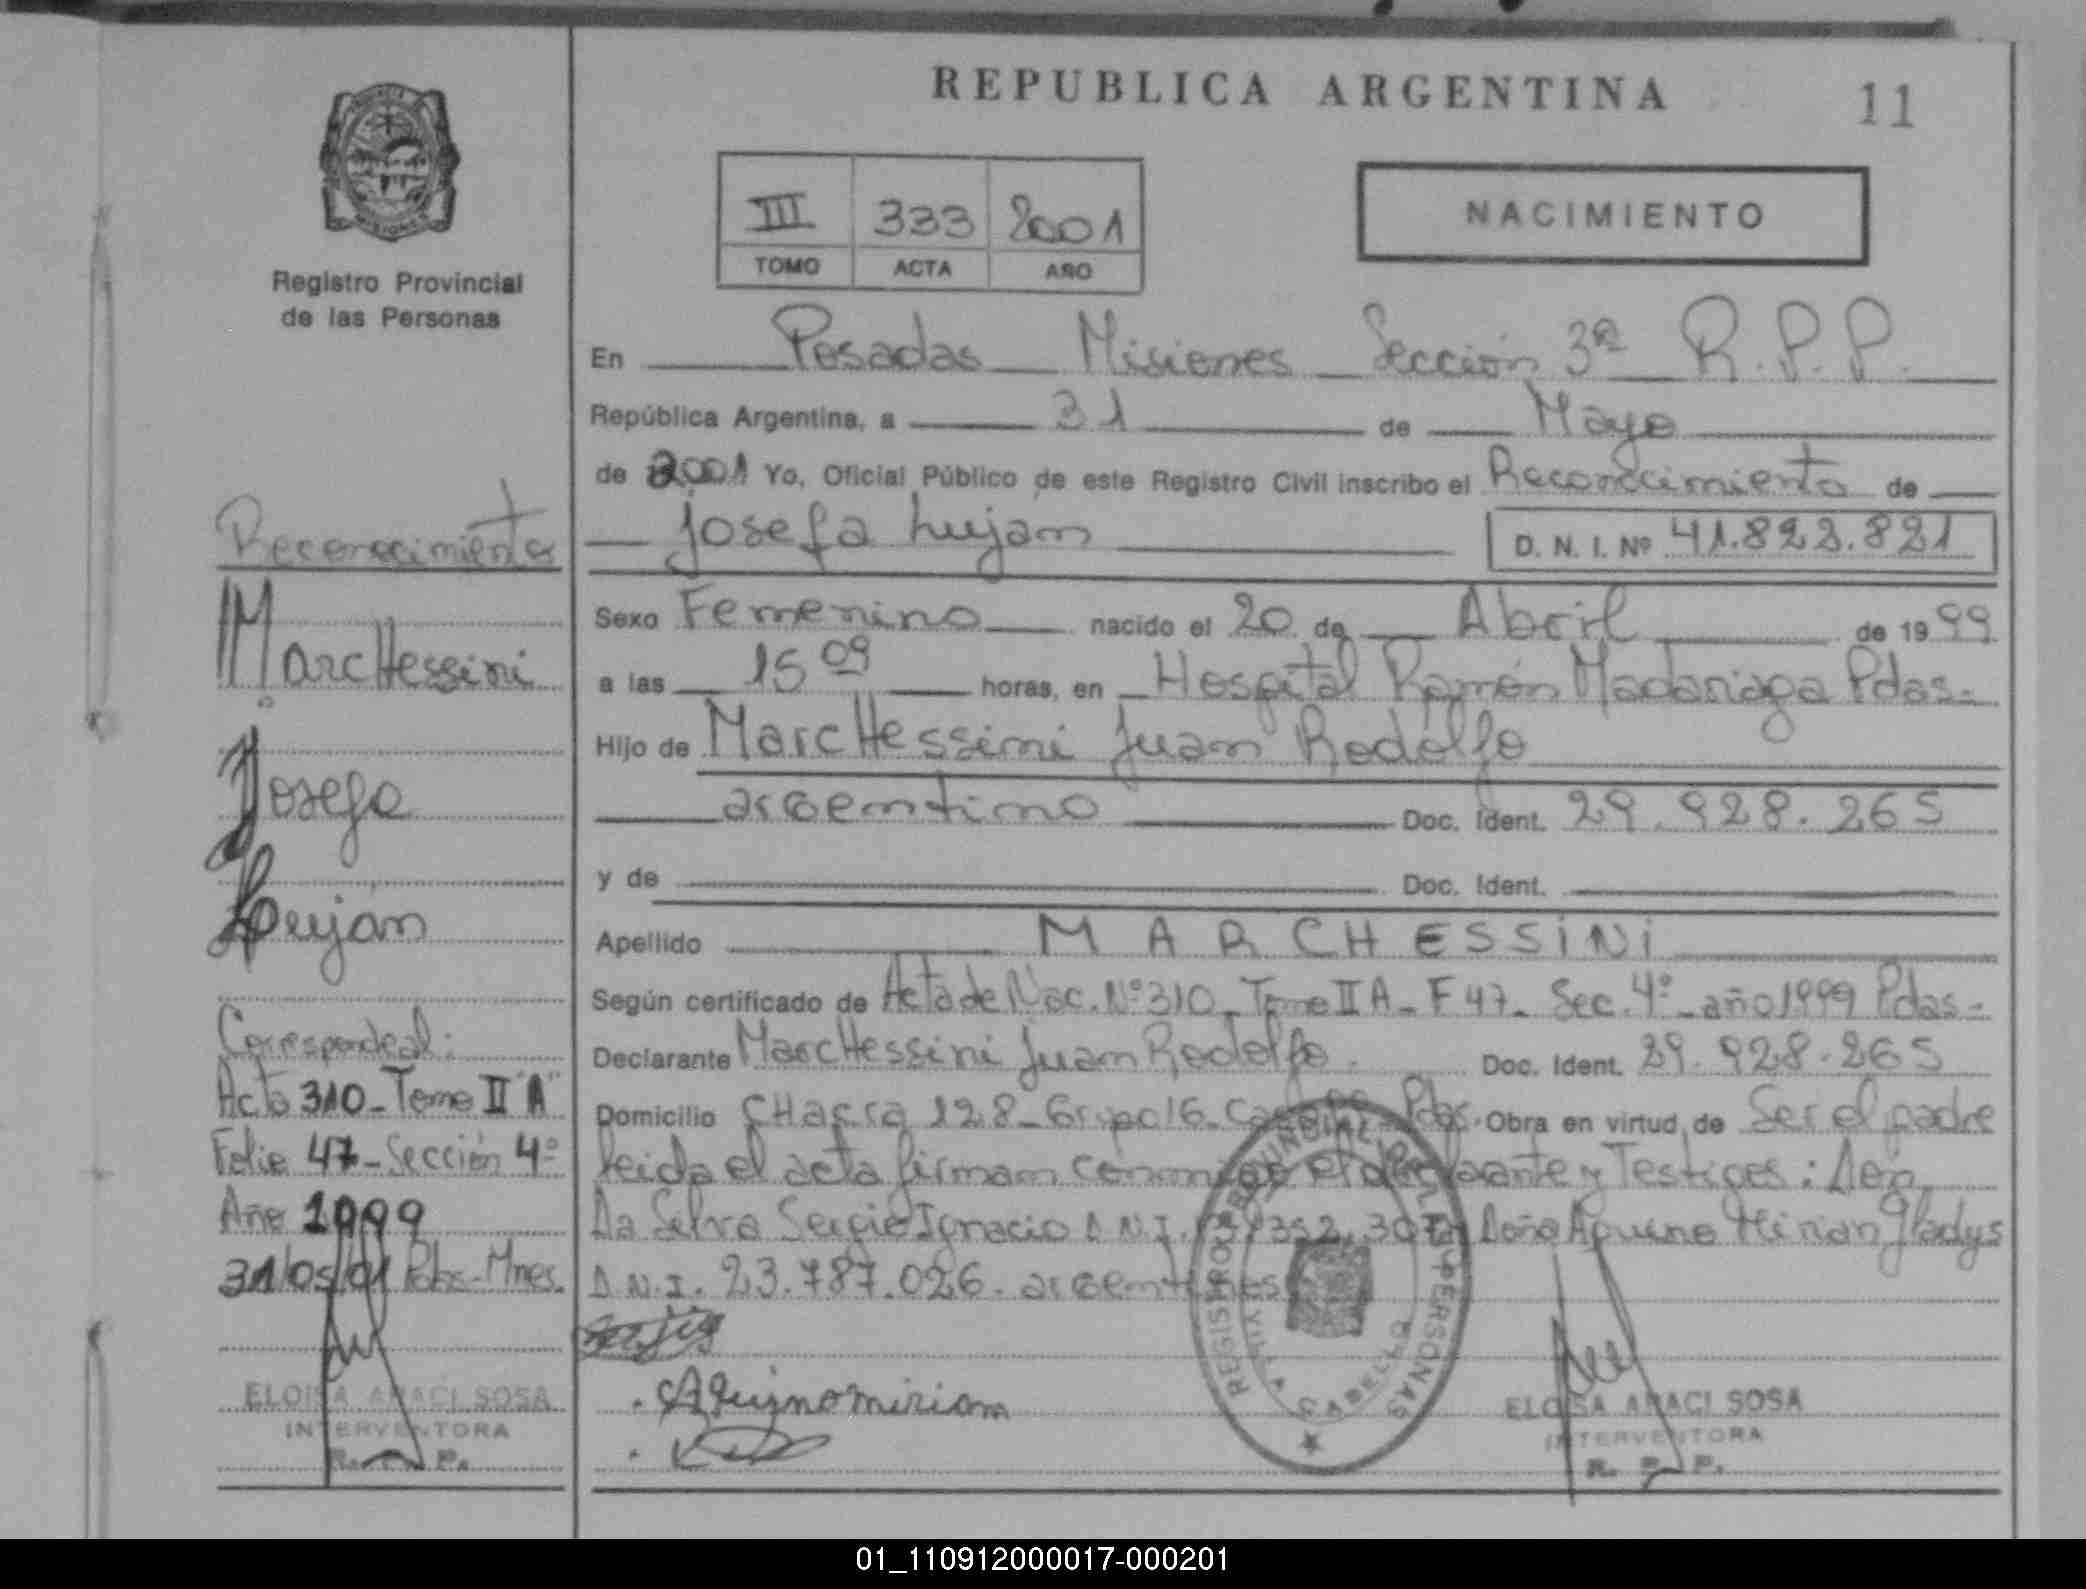 REPUBLICA ARGENTINA
11
III 333 2001
TOMO ACTA AÑO
NACIMIENTO
Registro Provincial
de las Personas
En Posadas Misiones Sección 3ª R.P.P.
República Argentina, a 31 de Mayo
de 2001 Yo, Oficial Público de este Registro Civil inscribo el Reconocimiento de
Josefa Lujan D. N. I. Nº 41.823.821
Sexo Femenino nacido el 20 de Abril de 1999
a las 15 09 horas, en Hospital Ramón Madariaga Pdas-
Hijo de Marchessini Juan Rodolfo
argentino Doc. Ident. 29.928.265
y de Doc. Ident.
Apellido MARCHESSINI
Según certificado de Acta de Nac. Nº 310_ Tomo II A_ F 47_ Sec. 4º _ año 1999 Pdas-
Declarante Marchessini Juan Rodolfo. Doc. Ident. 29.928.265
Domicilio CHacra 128_ Grupo 16_ Pdas. Obra en virtud de Ser el padre
leida el acta firman conmigo el declarante y Testigos: Don
Da Silva Sergio Ignacio D.N.I. Doña Aquino Mirian Gladys
D.N.I. 23.787.026. argentinos
Aquino miriam
REGISTRO PROVINCIAL DE LAS PERSONAS
CABELLO
ELOISA ARACI SOSA
INTERVENTORA
R. P. P.
Reconocimiento
Marchessini
Josefa
Lujan
Correspondeal:
Acta 310_ Tomo II "A"
Folio 47_ Sección 4º
Año 1999
31/05/01 Pdas-Mnes.
ELOISA ARACI SOSA
INTERVENTORA
R. P. P.
01_110912000017-000201